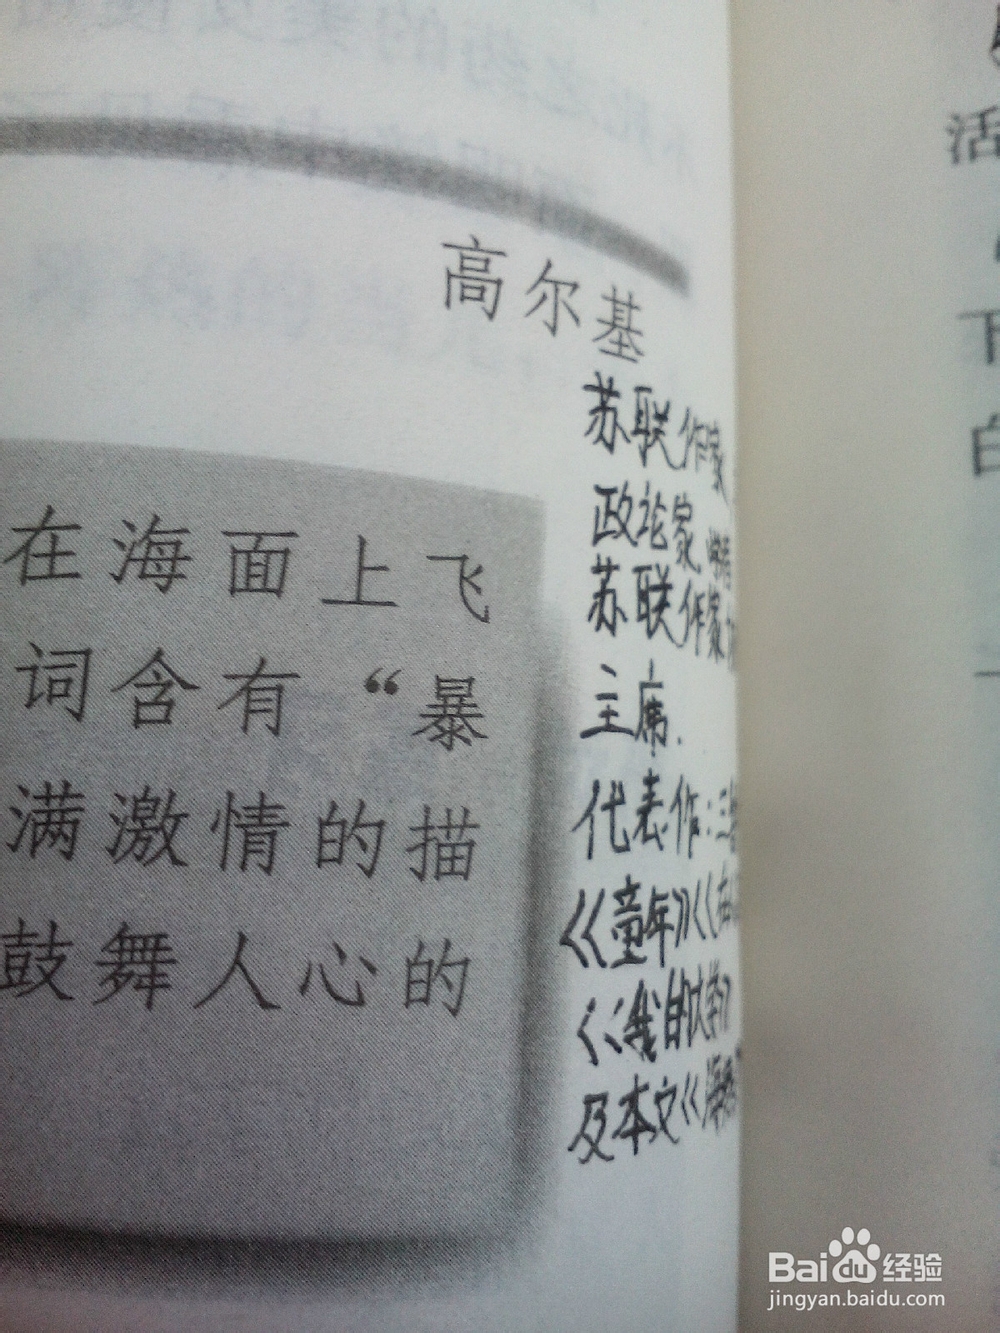 高尔基
苏联作家
政论家
苏联作家
主席.
代表作:三
《童年》《在
《我的大学》
及本文《海燕
在海面上飞
词含有“暴
满激情的描
鼓舞人心的
活
下
白
Baidu经验
jingyan.baidu.com